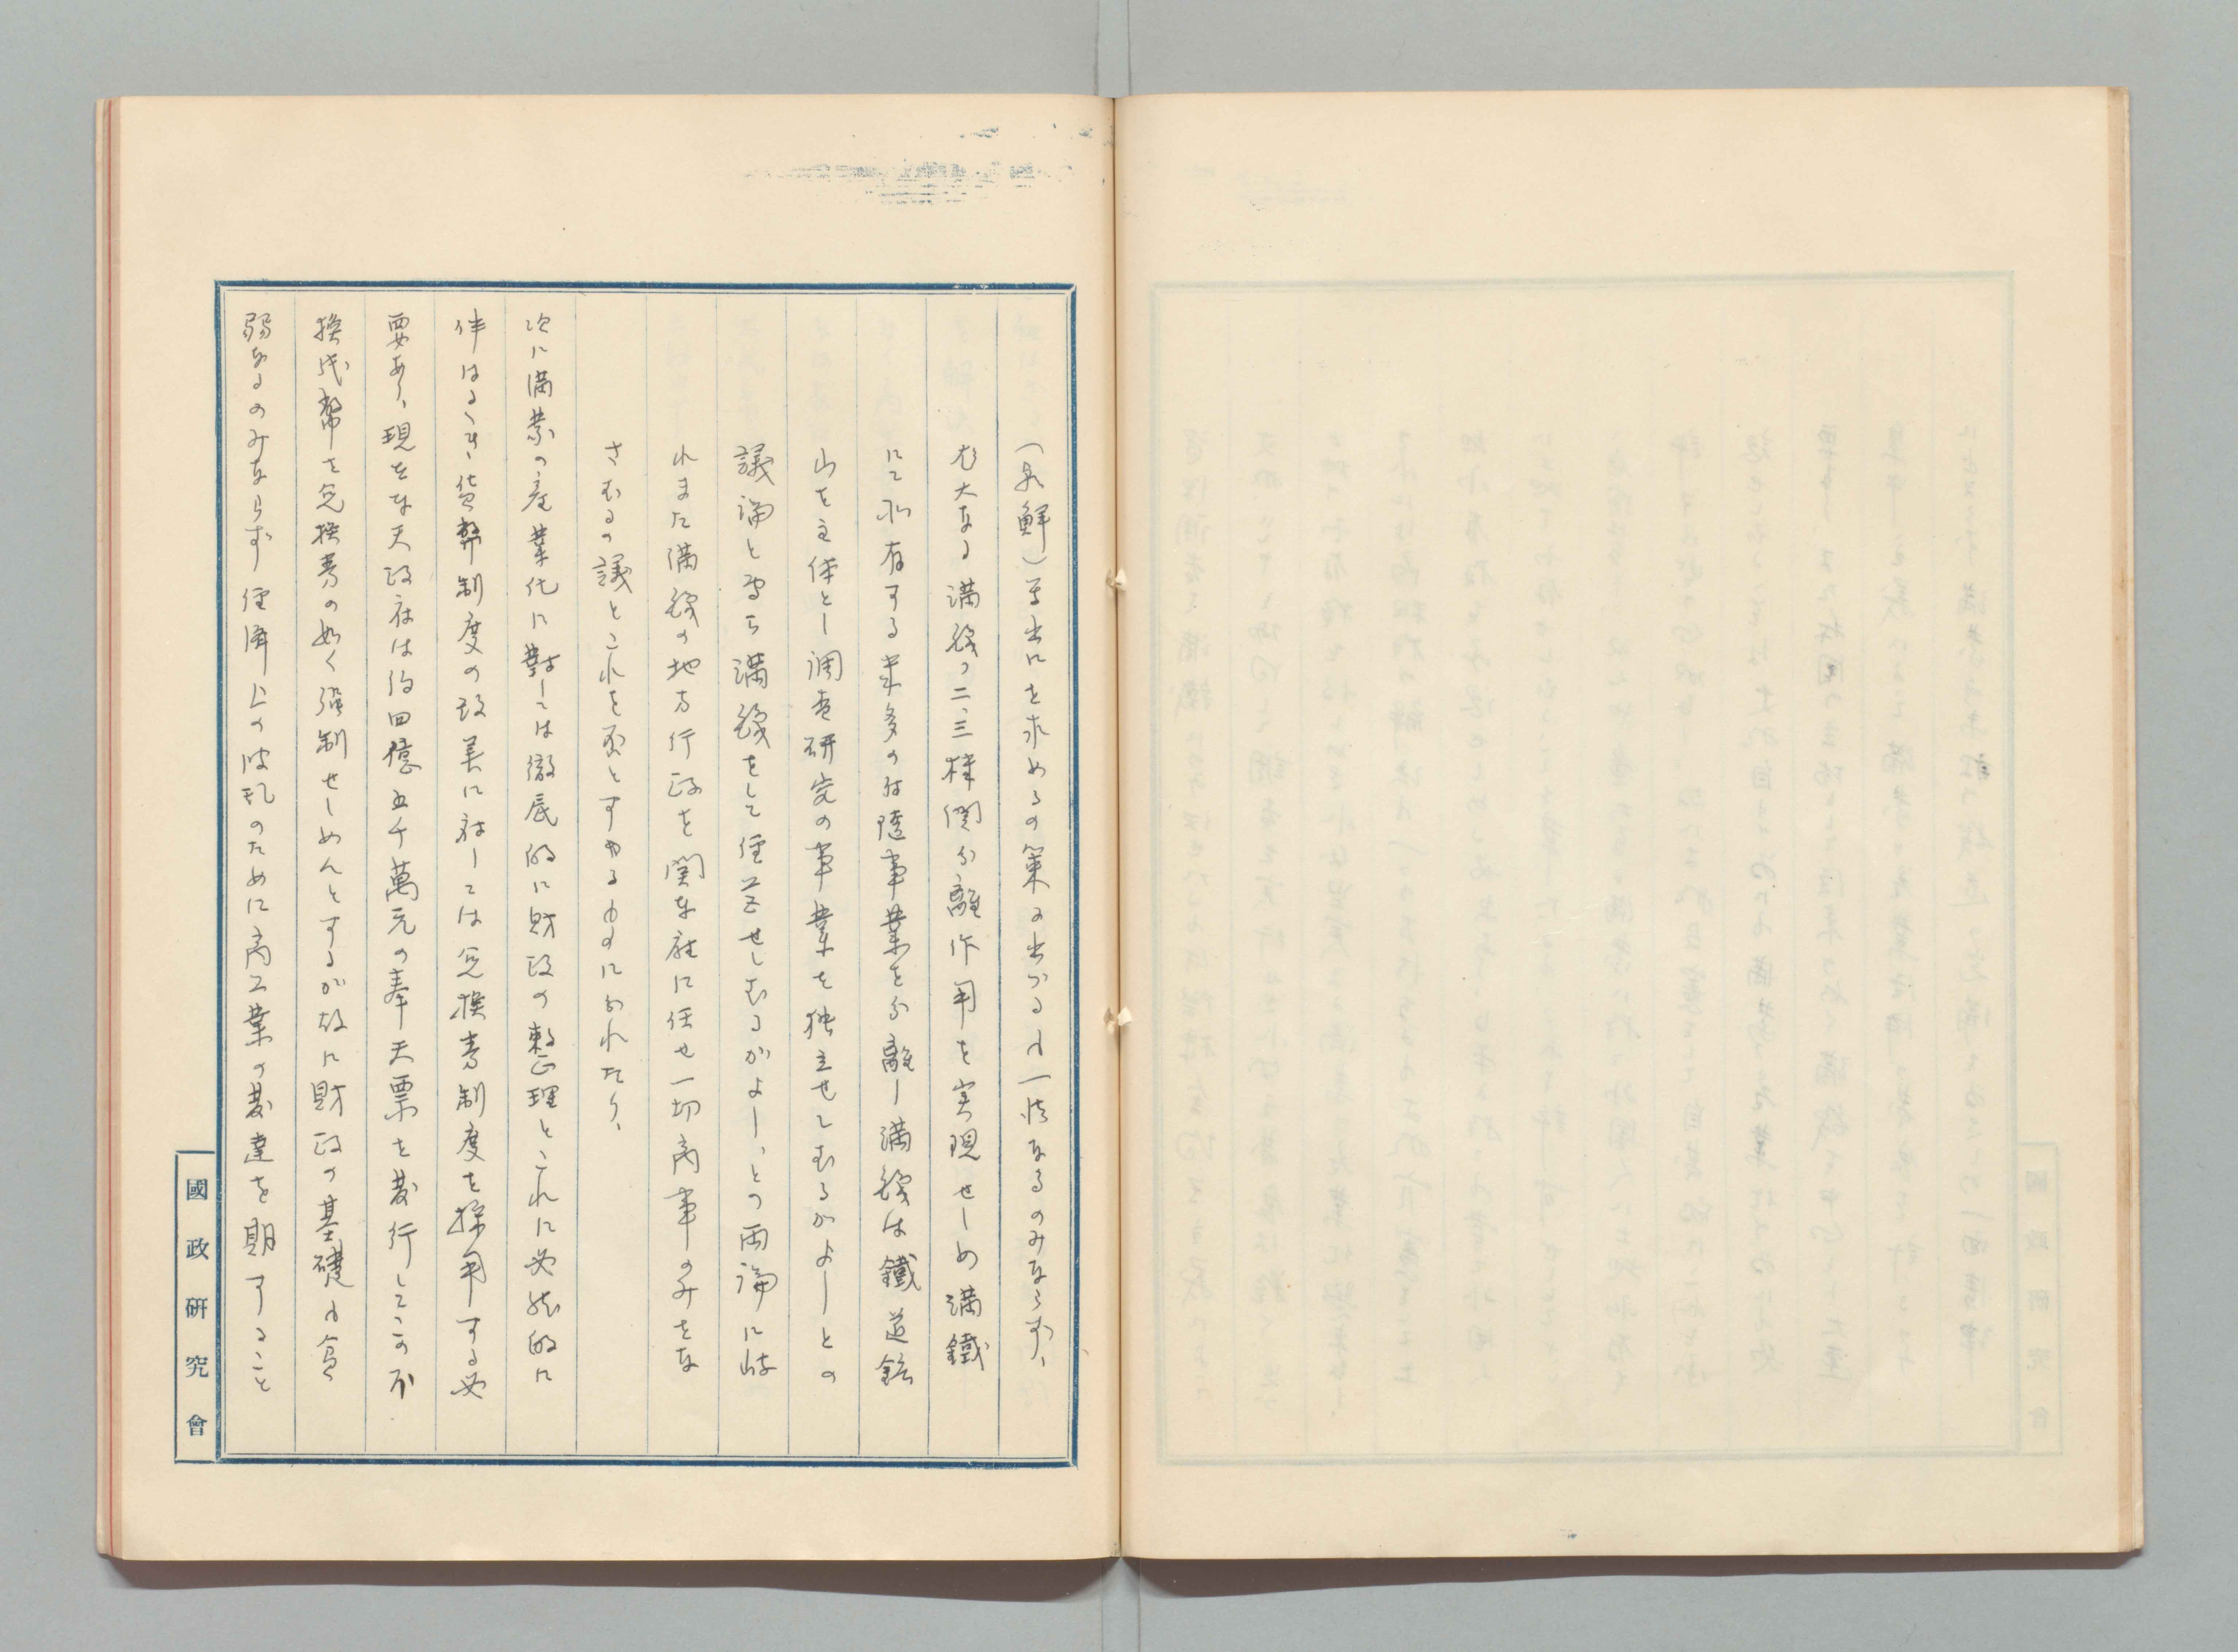 (鮮)に求めるの策に出づるも一法なるのみならず、
尨大なる満鉄の二、三様関分離作用を実現せしめ満鐵
にて所有する半多の附随事業を分離し満鉄は鐵道鉱
山を主体とし調査研究の事業を独立せしむるがよしとの
議論と寧ろ満鉄をして経営せしむるがよし、との両論に岐
れまた満鉄の地方行政を関東庁に任せ一切商事のみをな
さむるの議とこれを否とするものにわれたり、
次に満蒙の産業化に対しては徹底的に財政の整理とこれに必然的に
伴はるべき貨幣制度の改善に対しては兌換券制度を採用する必
要あり、現在奉天政府は約四億五千萬元の奉天票を発行してこの不
換紙幣を兌換券の如く強制せしめんとするが故に財政の基礎も貧
弱なるのみならず経済上の波乱のために商工業の発達を期すること
國政研究會